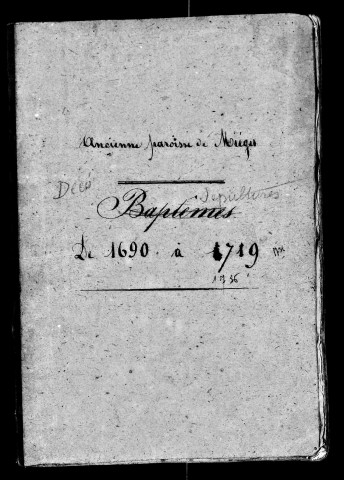 Ancienne paroisse de Mièges
Décè Sépultures
Baptêmes
De 1690 à 1719
1736